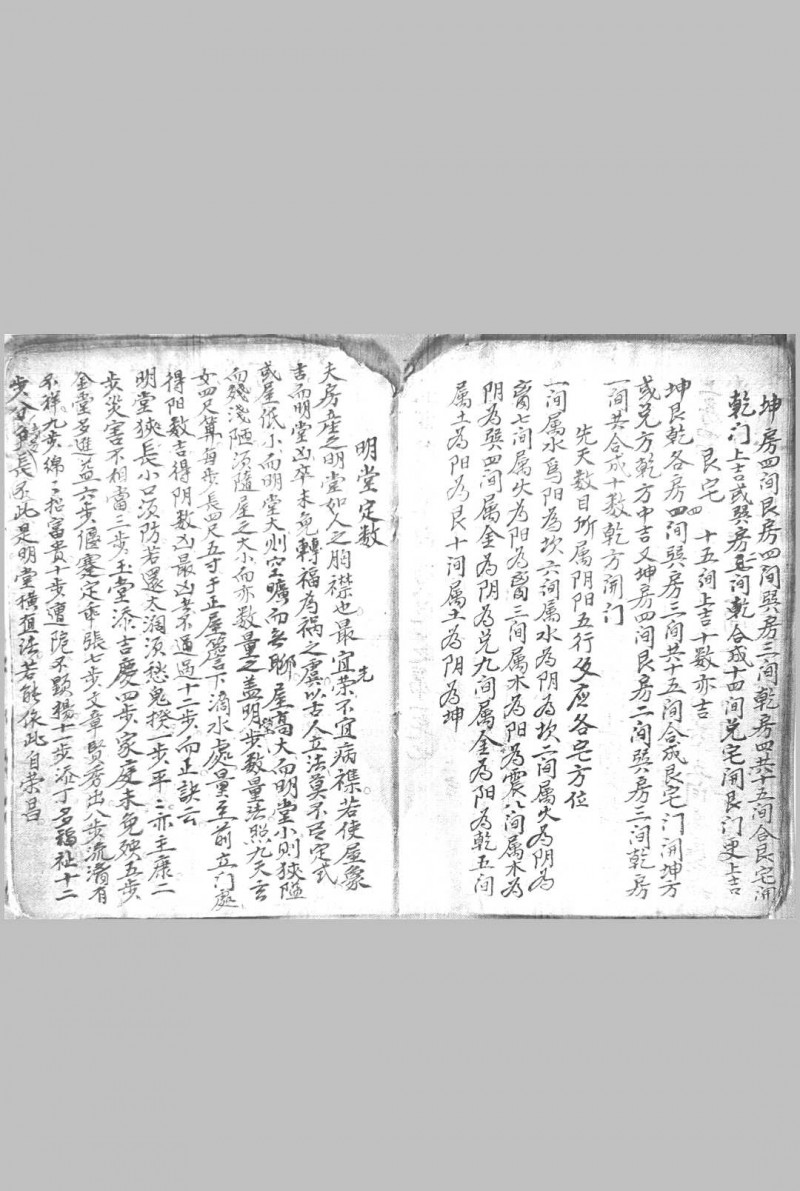 坤房四间艮房四间巽房三间乾房四共十五间合艮宅開
乾门上吉或巽房五间乾合成十四间兑宅闲艮门更上吉
艮宅　十五间上吉十数亦吉
坤艮乾各房四间巽房三间共十五间合成艮宅门闲坤方
或兑方乾方中吉又坤房四间艮房二间巽房三间乾房
一间共合成十数乾方開门
先天数目所属阴阳五行及应各宅方位
一间属水為阳為坎六间属水為阴為坎二间属火為阴為
离七间属火為阳為离三间属木為阳為震八间属木為
阴為巽四间属金為阴為兑九间属金為阳為乾五间
属土為阳為艮十间属土為阴為坤
明堂定数
夫房屋之明堂如人之胸襟也最宜荣不宜病襟若使屋象
先吉而明堂凶卒未免轉福為祸之虞以古人立法莫不有定式
或屋低小而明堂大则空曠而无聊屋高大而明堂小则狭隘
而殘淺陋须隨屋之大小而亦数量之盖明堂步数量法照九天玄
女四尺算每步長四尺五寸于正屋簷下滴水處量至前立门處
得阳数吉得阴数凶最凶者不過過十二步而正訣云
明堂狭長小口须防若還太濶须愁鬼揆一步平二亦主康二
步災害不相當三步玉堂添吉慶四步家庭未免殃五步
金堂多進益六步偃蹇定乖張七步文章賢秀出八步流滀有
不祥九步綿二招富貴十步遭阨不顯揚十一步添丁多福祉十二
步分角長丞此是明堂橫直法若能依此自荣昌